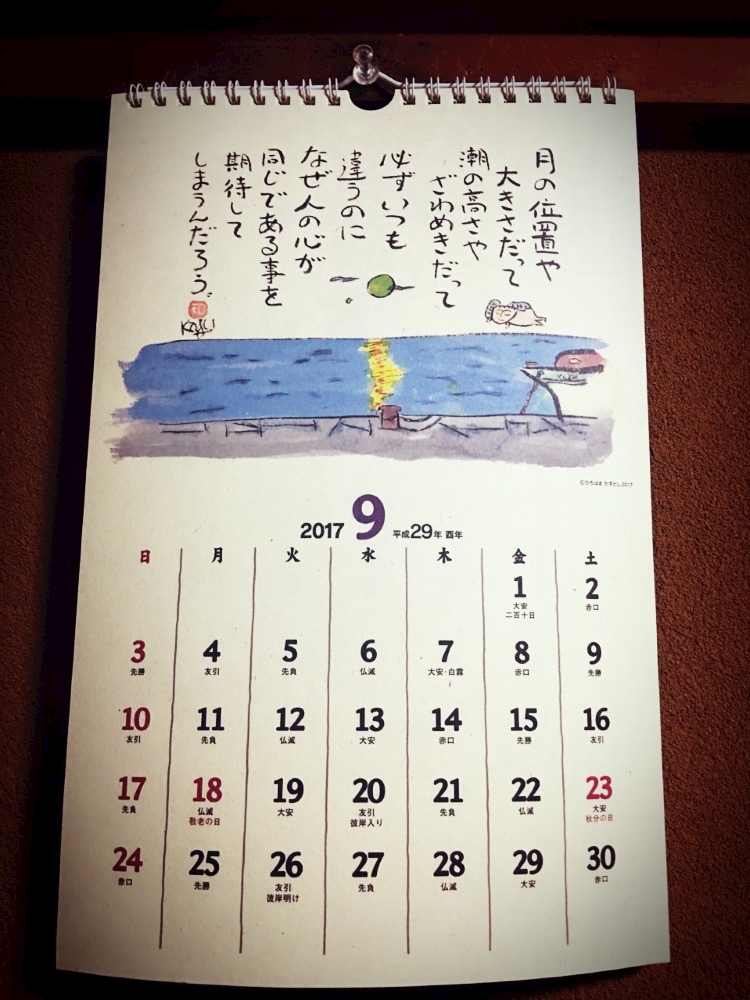 月の位置や
大きさだって
潮の高さや
ざわめきだって
必ずいつも
違うのに
なぜ人の心が
同じである事を
期待して
しまうんだろう。
©ひろはま かずとし 2017
2017 9 平成29年 酉年
日 月 火 水 木 金 土
1 2
大安 赤口
二百十日
3 4 5 6 7 8 9
先勝 友引 先負 仏滅 大安・白露 赤口 先勝
10 11 12 13 14 15 16
友引 先負 仏滅 大安 赤口 先勝 友引
17 18 19 20 21 22 23
先負 仏滅 大安 友引 先負 仏滅 大安
敬老の日 彼岸入り 秋分の日
24 25 26 27 28 29 30
赤口 先勝 友引 先負 仏滅 大安 赤口
彼岸明け